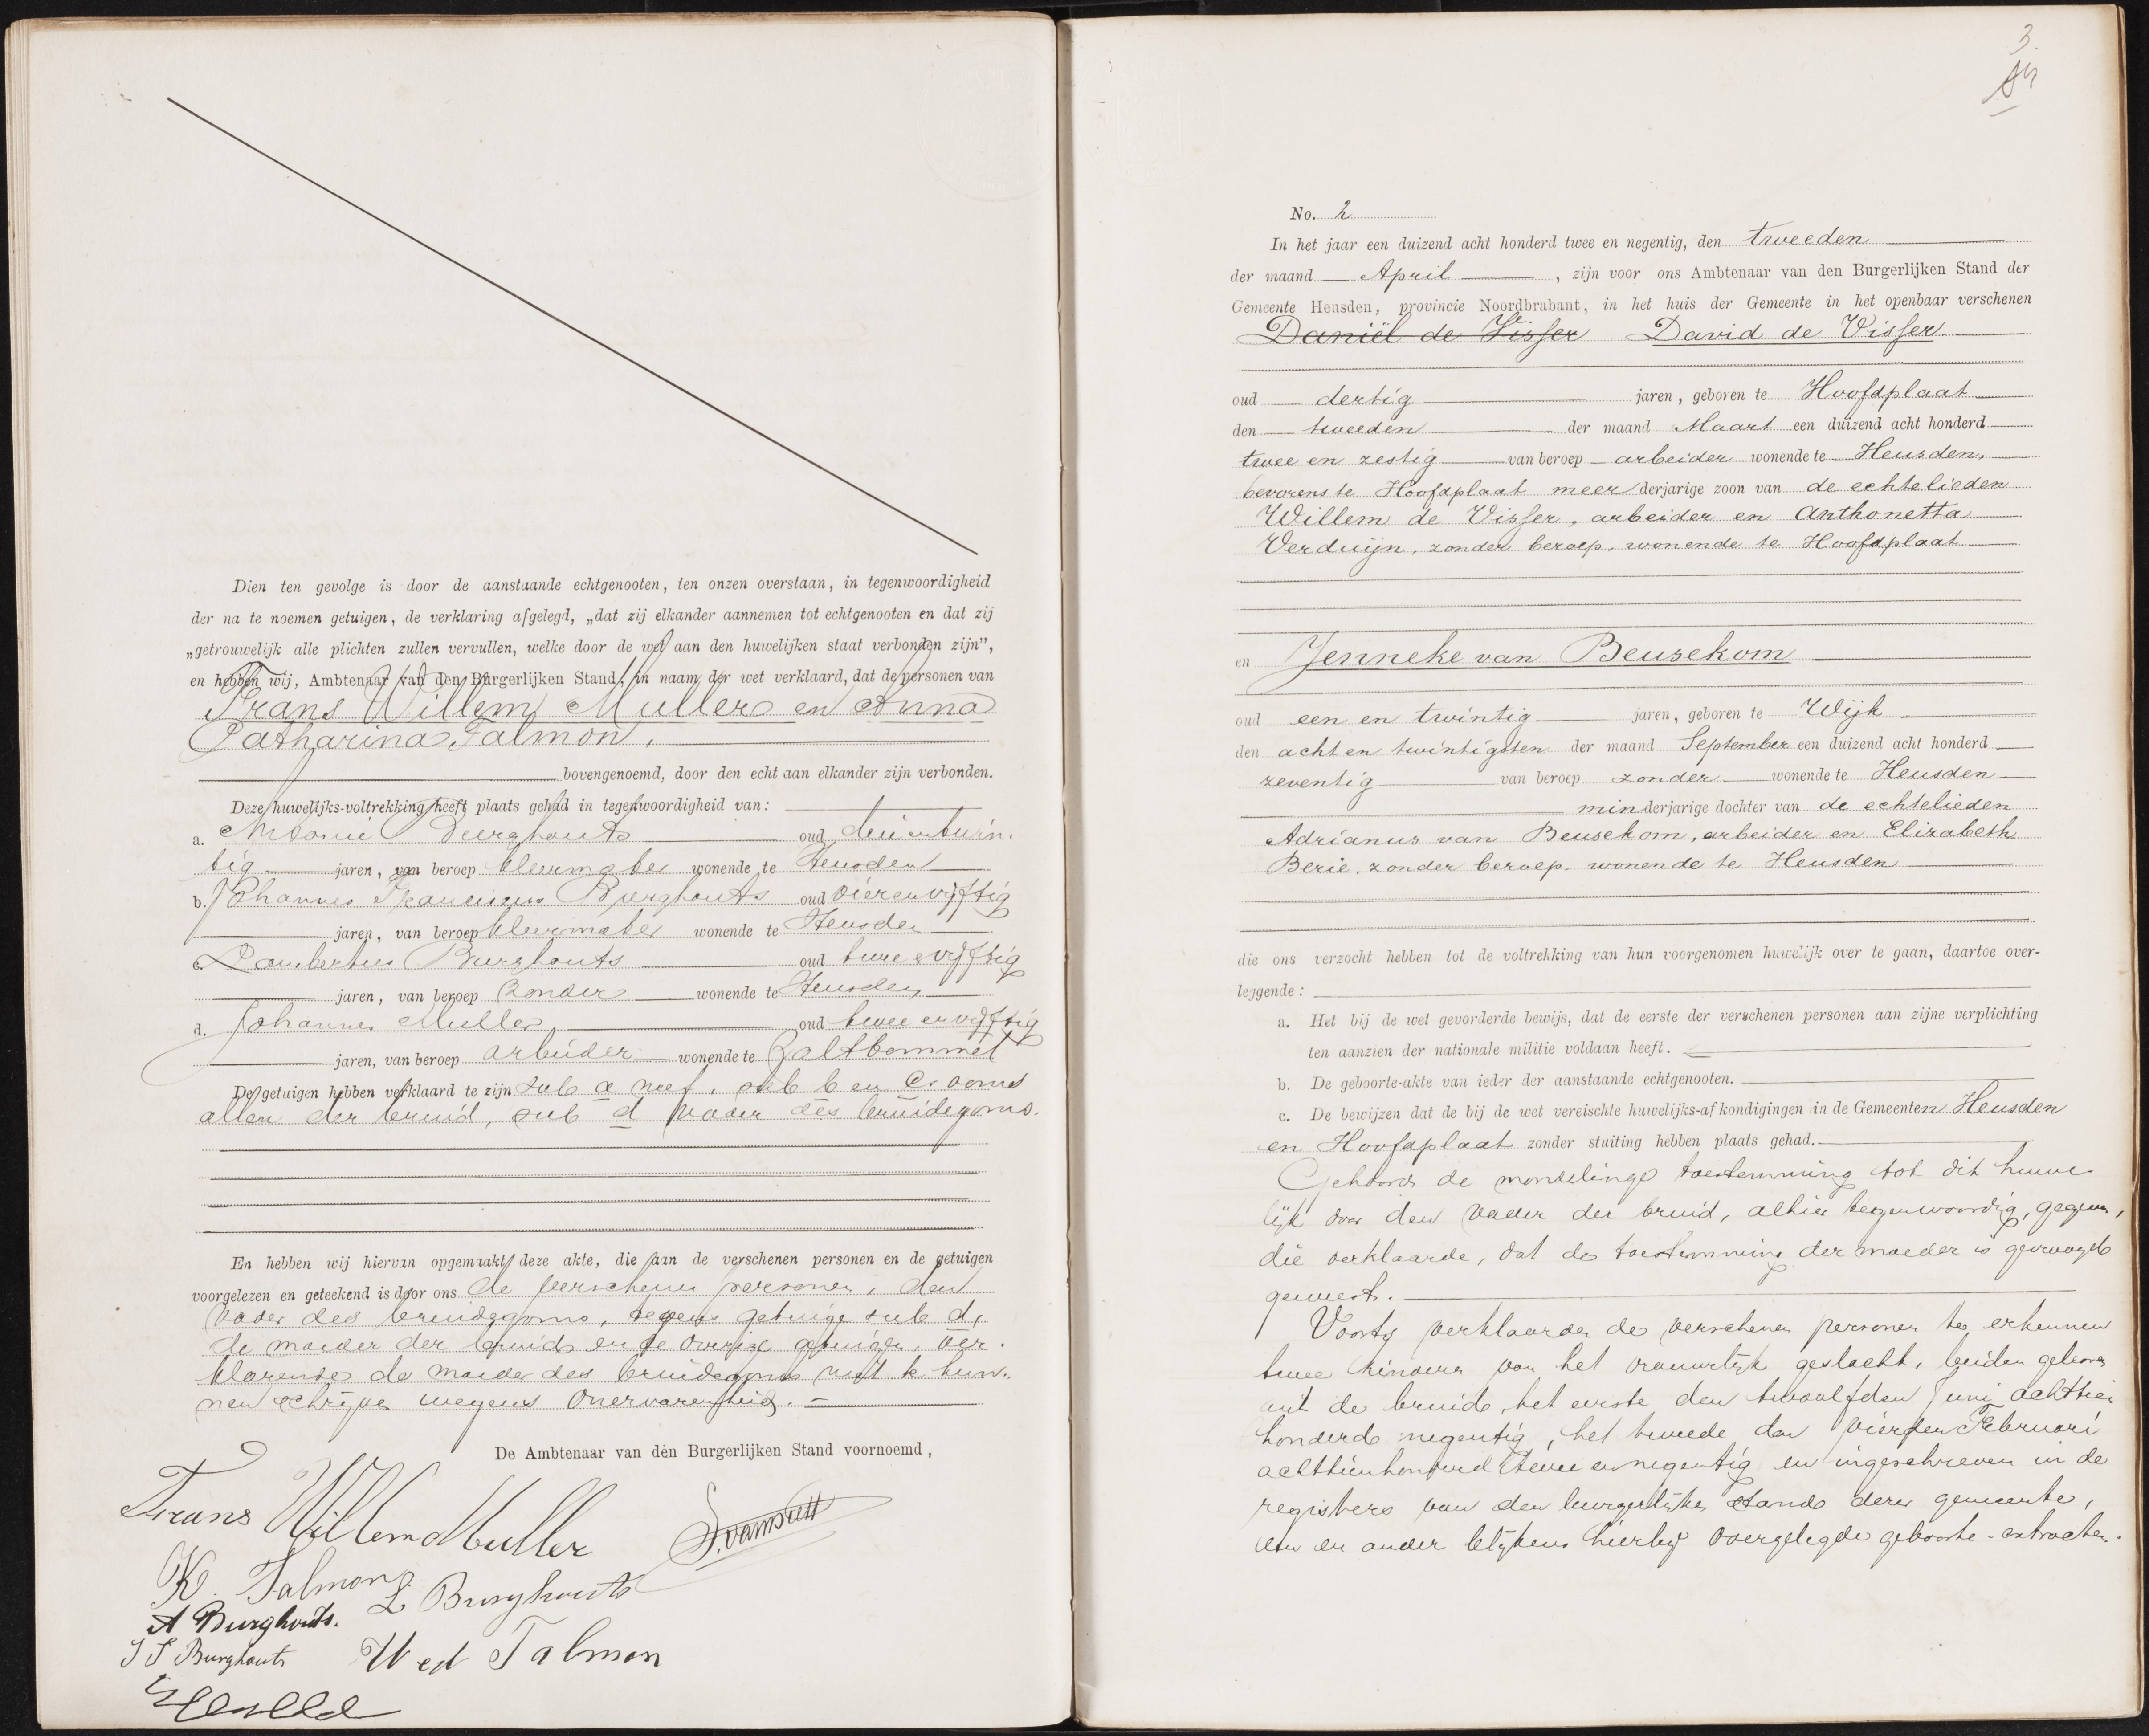 Dien ten gevolge is door de aanstaande echtgenooten, ten onzen overstaan, in tegenwoordigheid
der na te noemen getuigen, de verklaring afgelegd, „dat zij elkander aannemen tot echtgenooten en dat zij
„getrouwelijk alle plichten zullen vervullen, welke door de wet aan den huwelijken staat verbonden zijn”,
en hebben wij, Ambtenaar van den Burgerlijken Stand, in naam der wet verklaard, dat de personen van
Frans Willem Muller en Anna
Catharina Talmon,
bovengenoemd, door den echt aan elkander zijn verbonden.
Deze huwelijks-voltrekking heeft plaats gehad in tegenwoordigheid van:
a. Antonie Burghouts oud drie en twin-
tig jaren, van beroep kleermaker wonende te Heusden
b. Johannes Franciscus Burghouts oud vierenvijftig
jaren, van beroep kleermaker wonende te Heusden
c. Lambertus Burghouts oud twee en vijftig
jaren, van beroep zonder wonende te Heusden
d. Johannes Muller oud twee en vijftig
jaren, van beroep arbeider wonende te Zaltbommel
De getuigen hebben verklaard te zijn sub a neef, sub b en c ooms
allen der bruid, sub d vader des bruidegoms.
En hebben wij hiervan opgemaakt deze akte, die aan de verschenen personen en de getuigen
voorgelezen en geteekend is door ons de verschenen personen, den
vader des bruidegoms, tevens getuige sub d,
de moeder der bruid en de overige getuigen, ver-
klarende de moeder des bruidegoms niet te kun-
nen schrijven wegens onervarenheid.
De Ambtenaar van den Burgerlijken Stand voornoemd,
Frans Willem Muller
K. Talmon
L Burghouts
A Burghouts.
J F Burghouts
Wed Talmon
3.
No. 2
In het jaar een duizend acht honderd twee en negentig, den tweeden
der maand April, zijn voor ons Ambtenaar van den Burgerlijken Stand der
Gemeente Heusden, provincie Noordbrabant, in het huis der Gemeente in het openbaar verschenen
Daniël de Visser David de Visser
oud dertig jaren, geboren te Hoofdplaat
den tweeden der maand Maart een duizend acht honderd
twee en zestig van beroep arbeider wonende te Heusden,
bevorens te Hoofdplaat meerderjarige zoon van de echtelieden
Willem de Visser, arbeider en Anthonetta
Verduijn, zonder beroep, wonende te Hoofdplaat
en Jenneke van Beusekom
oud een en twintig jaren, geboren te Wijk
den acht en twintigsten der maand September een duizend acht honderd
zeventig van beroep zonder wonende te Heusden
minderjarige dochter van de echtelieden
Adrianus van Beusekom, arbeider en Elizabeth
Berie, zonder beroep, wonende te Heusden
die ons verzocht hebben tot de voltrekking van hun voorgenomen huwelijk over te gaan, daartoe over-
leggende:
a. Het bij de wet gevorderde bewijs, dat de eerste der verschenen personen aan zijne verplichting
ten aanzien der nationale militie voldaan heeft.
b. De geboorte-akte van ieder der aanstaande echtgenooten.
c. De bewijzen dat de bij de wet vereischte huwelijks-afkondigingen in de Gemeenten Heusden
en Hoofdplaat zonder stuiting hebben plaats gehad.
Gehoord de mondelinge toestemming tot dit huwe-
lijk door den vader der bruid, alhier tegenwoordig, gegeven,
die verklaarde, dat de toestemming der moeder is gevraagd
geweest.
Voorts verklaarden de verschenen personen te erkennen
twee kinderen van het vrouwelijk geslacht, beiden geboren
uit de bruid, het eerste den twaalfden Juni achttien
honderd negentig, het tweede den vierden Februari
achttienhonderd twee en negentig en ingeschreven in de
registers van den burgerlijken stand dezer gemeente,
een en ander blijkens hierbij overgelegde geboorte-extracten.